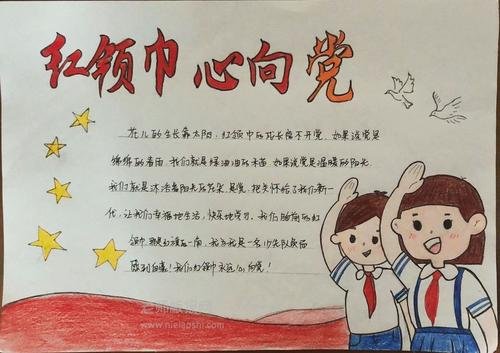 红领巾 心向党
花儿的生长靠太阳,红领巾的成长离不开党。如果说党是
绵绵的春雨,我们就是绿油油的禾苗,如果说党是温暖的阳光,
我们就是沐浴着阳光的花朵。是党,把关怀给了我们新一
代,让我们幸福地生活,快乐地学习。我们胸前的红
领巾
我为我是一名少先队员而
感到自豪!我们红领巾永远心向党!
www.nielaoshi.com